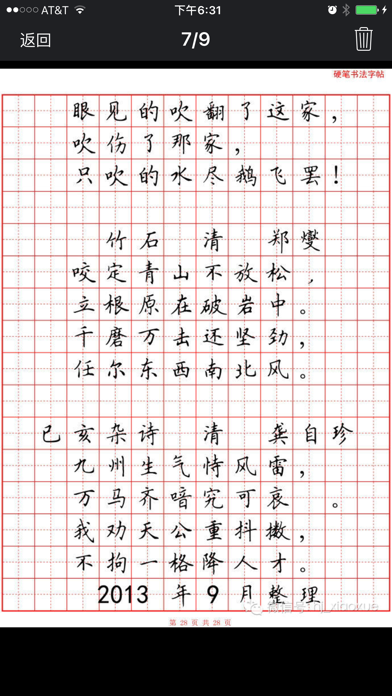 AT&T 下午6:31
返回 7/9
硬笔书法字帖
眼见的吹翻了这家，
吹伤了那家，
只吹的水尽鹅飞罢！
竹石 清 郑燮
咬定青山不放松，
立根原在破岩中。
千磨万击还坚劲，
任尔东西南北风。
已亥杂诗 清 龚自珍
九州生气恃风雷，
万马齐喑究可哀 。
我劝天公重抖擞，
不拘一格降人才。
2013 年 9 月整理
微信号
第 28 页 共 28 页